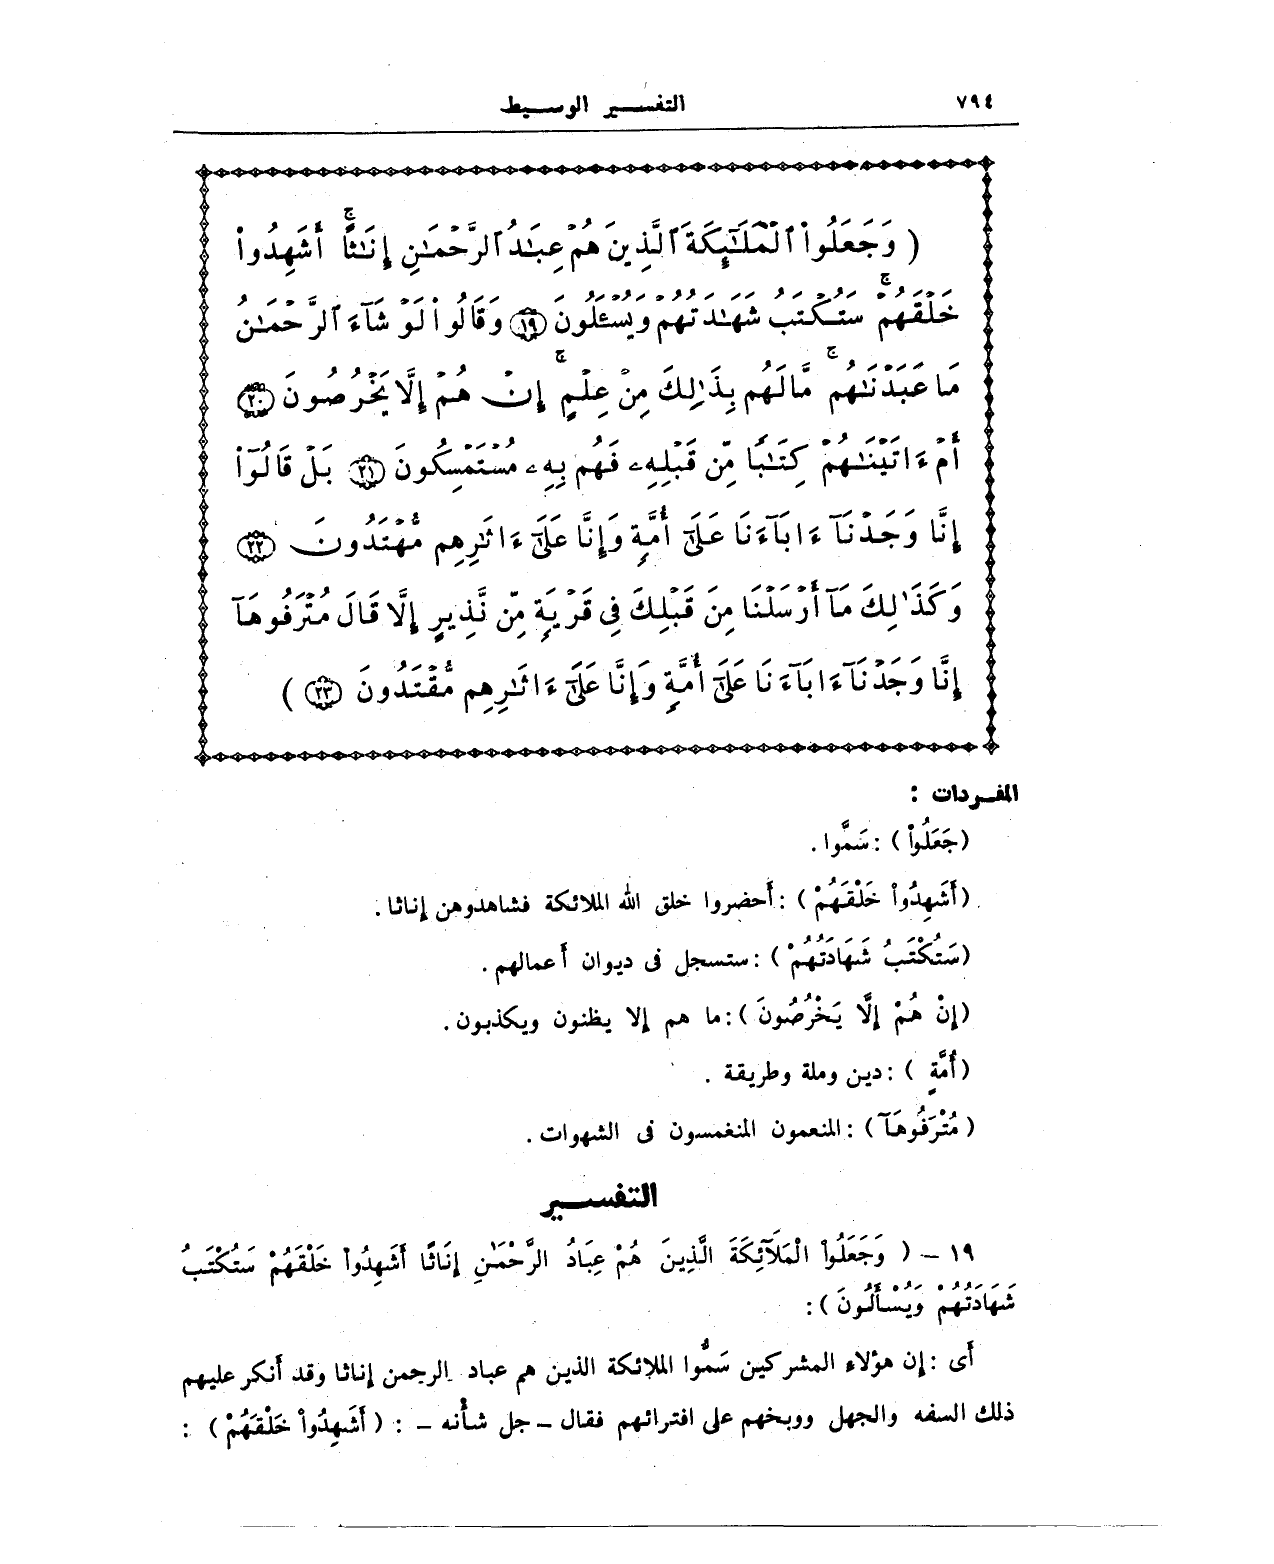 ٧٩٤
التفسير الوسيط
( وَجَعَلُوا۟ ٱلْمَلَـٰٓئِكَةَ ٱلَّذِينَ هُمْ عِبَـٰدُ ٱلرَّحْمَـٰنِ إِنَـٰثًا ۚ أَشَهِدُوا۟
خَلْقَهُمْ ۚ سَتُكْتَبُ شَهَـٰدَتُهُمْ وَيُسْـَٔلُونَ ١٩ وَقَالُوا۟ لَوْ شَآءَ ٱلرَّحْمَـٰنُ
مَا عَبَدْنَـٰهُم ۗ مَّا لَهُم بِذَٰلِكَ مِنْ عِلْمٍ ۖ إِنْ هُمْ إِلَّا يَخْرُصُونَ ٢٠
أَمْ ءَاتَيْنَـٰهُمْ كِتَـٰبًا مِّن قَبْلِهِۦ فَهُم بِهِۦ مُسْتَمْسِكُونَ ٢١ بَلْ قَالُوٓا۟
إِنَّا وَجَدْنَآ ءَابَآءَنَا عَلَىٰٓ أُمَّةٍ وَإِنَّا عَلَىٰٓ ءَاثَـٰرِهِم مُّهْتَدُونَ ٢٢
وَكَذَٰلِكَ مَآ أَرْسَلْنَا مِن قَبْلِكَ فِى قَرْيَةٍ مِّن نَّذِيرٍ إِلَّا قَالَ مُتْرَفُوهَآ
إِنَّا وَجَدْنَآ ءَابَآءَنَا عَلَىٰٓ أُمَّةٍ وَإِنَّا عَلَىٰٓ ءَاثَـٰرِهِم مُّقْتَدُونَ ٢٣ )
المفردات :
(جَعَلُواْ ) : سَمَّوا .
(أَشَهِدُواْ خَلْقَهُمْ ) : أَحضروا خلق الله الملائكة فشاهدوهن إناثا .
(سَتُكْتَبُ شَهَادَتُهُمْ ) : ستسجل فى ديوان أَعمالهم .
(إِنْ هُمْ إِلَّا يَخْرُصُونَ ) : ما هم إلا يظنون ويكذبون .
(أُمَّةٍ ) : دين وملة وطريقة .
( مُتْرَفُوهَآ ) : المنعمون المنغمسون فى الشهوات .
التفسير
١٩ - ( وَجَعَلُواْ الْمَلَآئِكَةَ الَّذِينَ هُمْ عِبَادُ الرَّحْمَٰنِ إِنَاثًا أَشَهِدُواْ خَلْقَهُمْ سَتُكْتَبُ
شَهَادَتُهُمْ وَيُسْأَلُونَ ) :
أَى : إن هؤلاء المشركين سَمُّوا الملائكة الذين هم عباد الرحمن إناثا وقد أَنكر عليهم
ذلك السفه والجهل ووبخهم على افترائهم فقال - جل شأْنه - : ( أَشَهِدُواْ خَلْقَهُمْ ) :